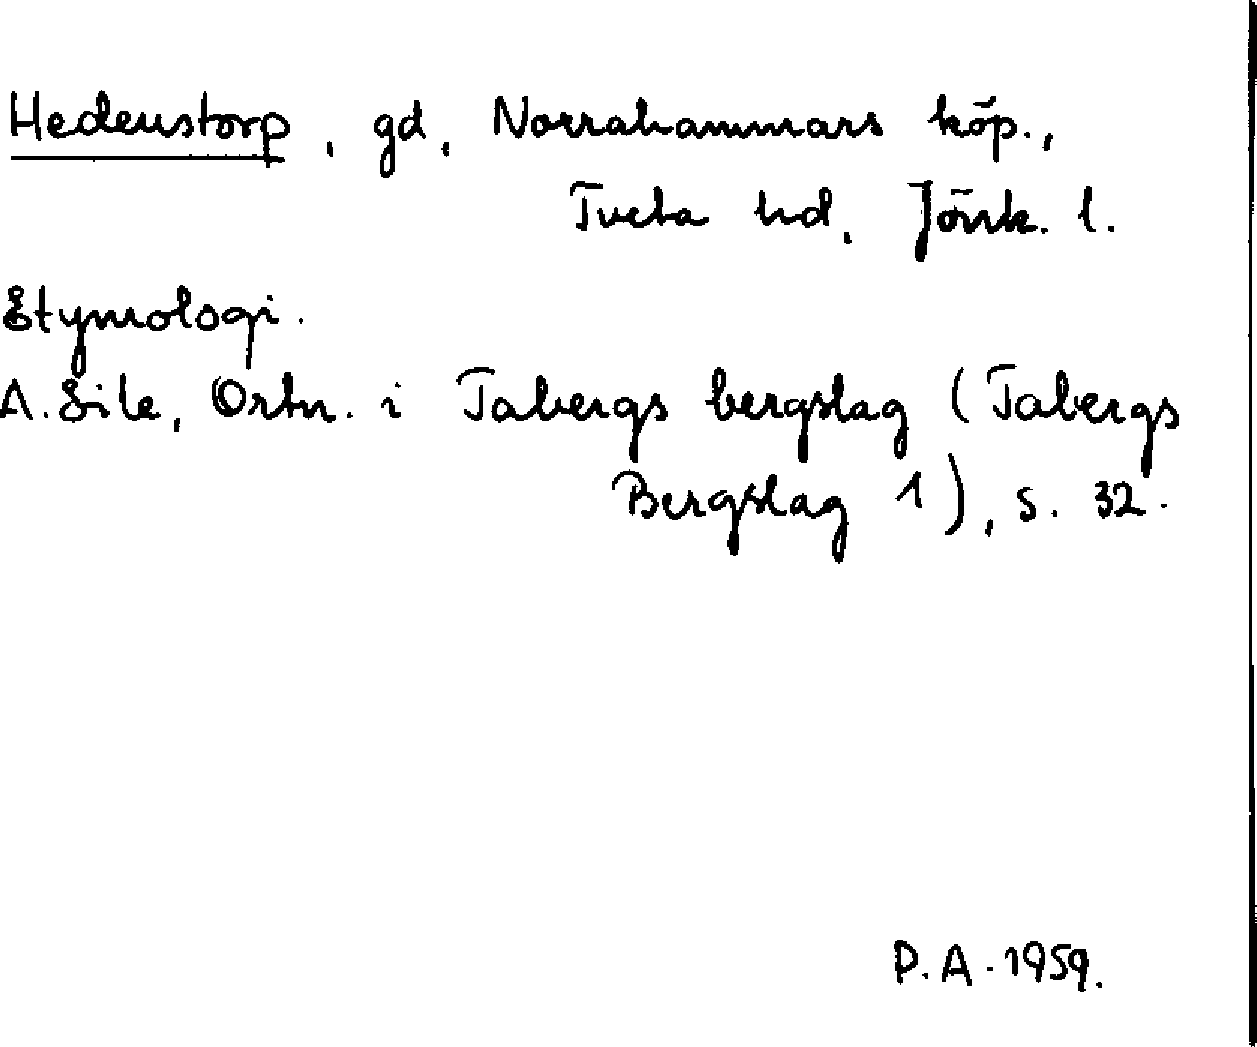 Hedenstorp, gd, Norrahammars köp.,
Tveta hd, Jönk. l.
Etymologi.
A. Ortn. i Tabergs bergslag (Tabergs
Bergslag 1), s. 32.
P.A. 1959.